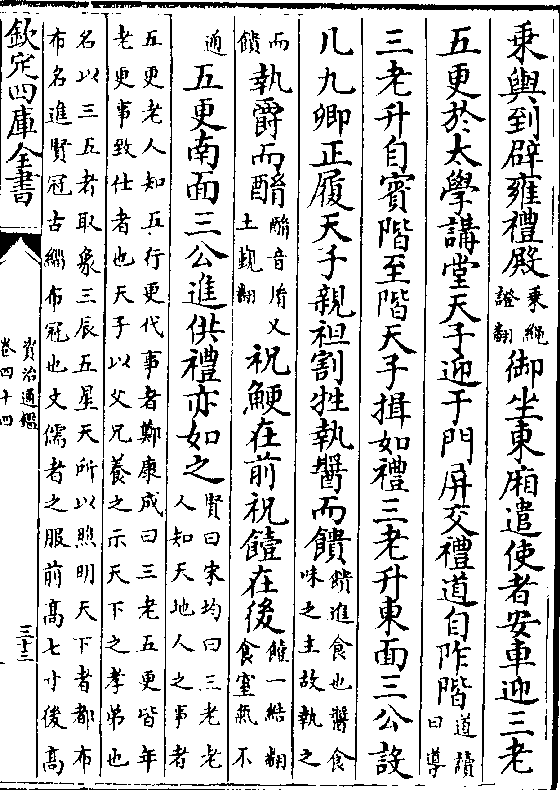 乘輿到辟雍禮殿乘繩證翻御坐東廂遣使者安車迎三老
五更於太學講堂天子迎于門屏交禮道自阼階道讀曰導
三老升自賓階至階天子揖如禮三老升東面三公設
几九卿正履天子親袒割牲執醬而饋饋進食也醬食味之主故執之
而饋執爵而酳酳音胤又士覲翻祝鯁在前祝饐在後饐一結翻食窒氣不
通五更南面三公進供禮亦如之賢曰宋均曰三老老人知天地人之事者
五更老人知五行更代事者鄭康成曰三老五更皆年
老更事致仕者也天子以父兄養之示天下之孝弟也
名以三五者取象三辰五星天所以照明天下者都布
布名進賢冠古緇布冠也文儒者之服前高七寸後高
欽定四庫全書
資治通鑑
卷四十四
三十三